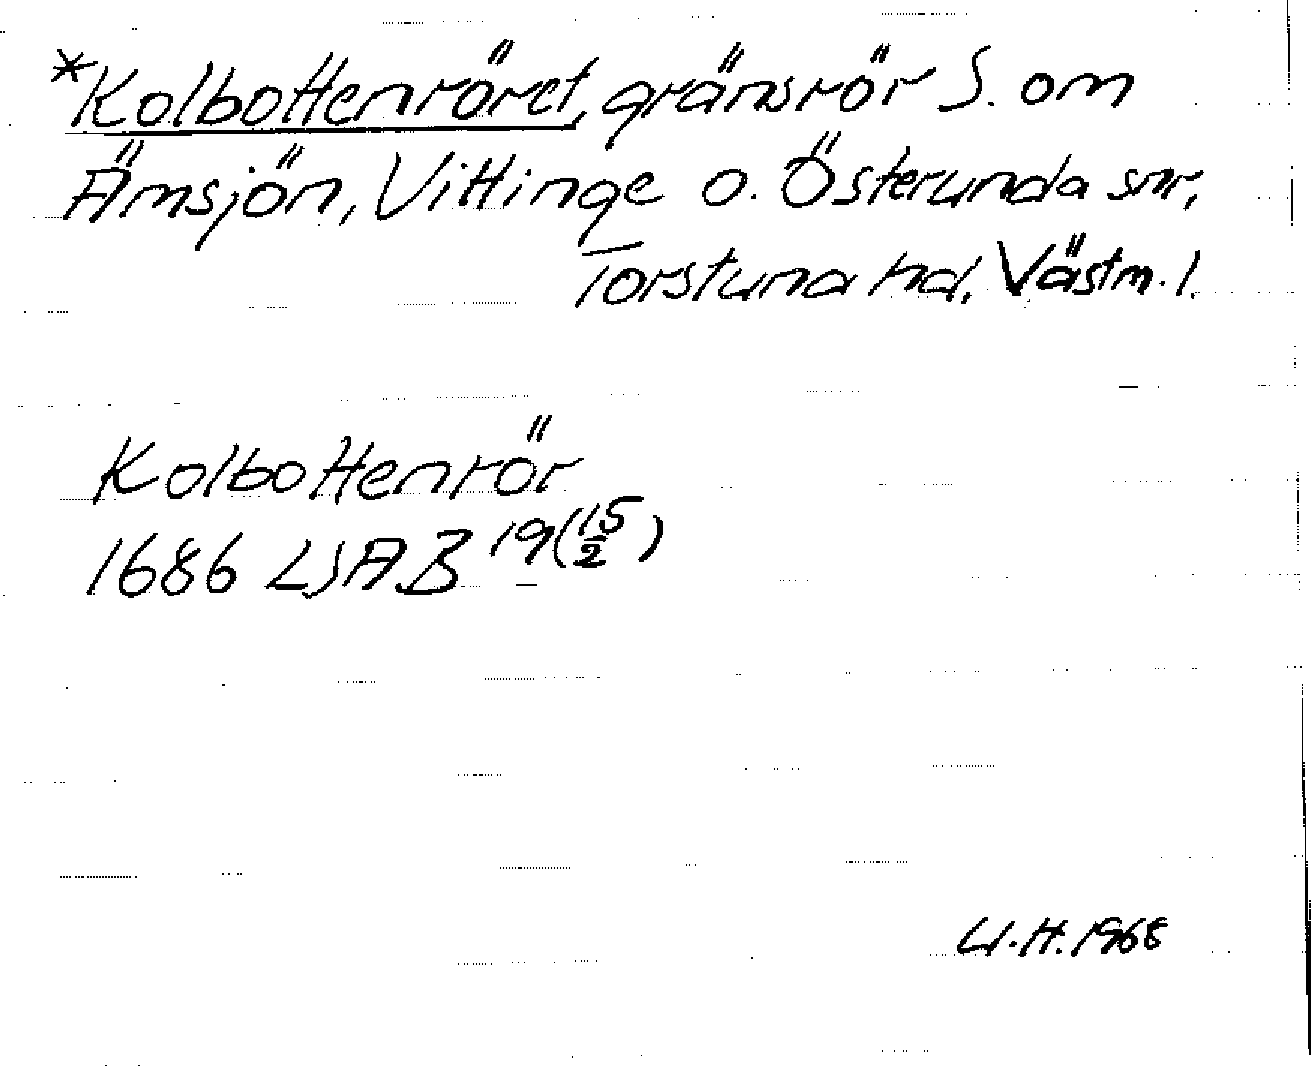 *Kolbottenröret, gränsrör S. om
Ämsjön, Vittinge o. Österunda snr,
Torstuna hd, Västm. l.
Kolbottenrör
1686 LSA B 19(15/2)
U.H. 1968